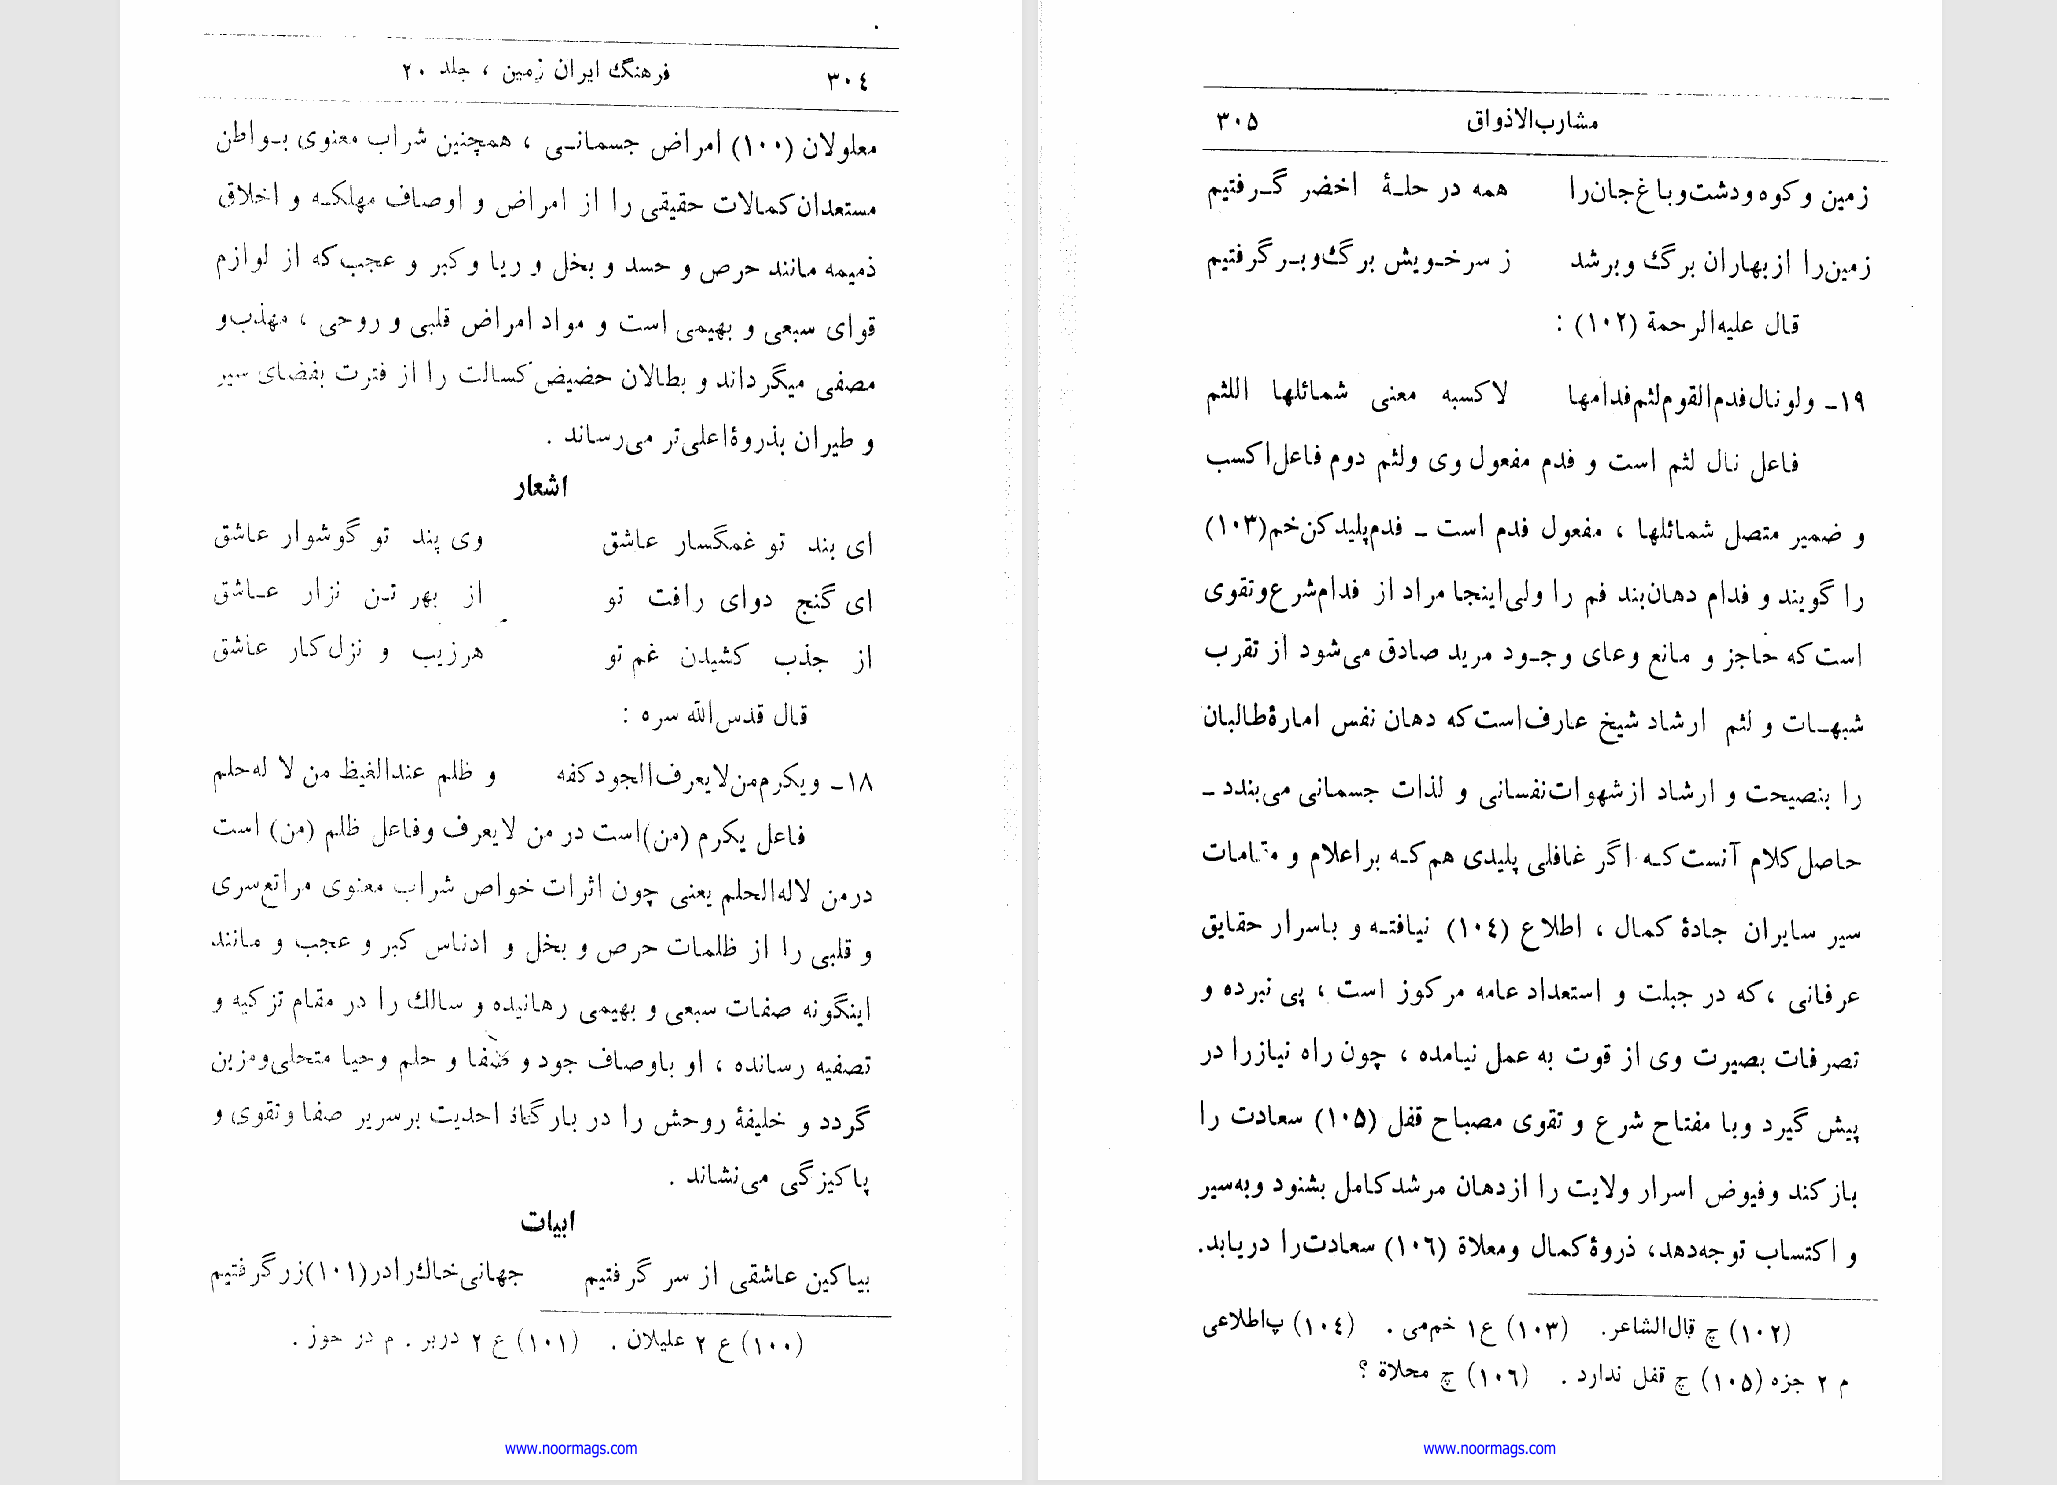 ۳۰٤ فرهنگ ایران زمین ، جلد ۲۰
معلولان (۱۰۰) امراض جسمانـی ، همچنین شراب معنوی بـواطن
مستعدان کمالات حقیقی را از امراض و اوصاف مهلکـه و اخلاق
ذمیمه مانند حرص و حسد و بخل و ریا و کبر و عجب که از لوازم
قوای سبعی و بهیمی است و مواد امراض قلبی و روحی ، مهذب و
مصفی میگرداند و بطالان حضیض کسالت را از فترت بفضای سیر
و طیران بذروهٔ اعلی تر می‌رساند .
اشعار
ای بند تو غمگسار عاشق وی پند تو گوشوار عاشق
ای گنج دوای رافت تو از بهر تـن نزار عـاشق
از جذب کشیدن غم تو هرزیب و نزل کار عاشق
قال قدس‌الله سره :
۱۸ـ ویکرم من لایعرف الجود کفه و ظلم عندالغیظ من لا له حلم
فاعل یکرم (من) است در من لایعرف و فاعل ظلم (من) است
درمن لاله الحلم یعنی چون اثرات خواص شراب معنوی مراتع سری
و قلبی را از ظلمات حرص و بخل و ادناس کبر و عجب و مانند
اینگونه صفات سبعی و بهیمی رهانیده و سالك را در مقام تزکیه و
تصفیه رسانده ، او باوصاف جود و صفا و حلم و حیا متحلی و مزین
گردد و خلیفهٔ روحش را در بارگاه احدیت برسریر صفا و تقوی و
پاکیزگی می‌نشاند .
ابیات
بیا کین عاشقی از سر گرفتیم جهانی خاك را در (۱۰۱) زر گرفتیم
(۱۰۰) ع ۲ علیلان . (۱۰۱) ع ۲ دربر . م در حوز .
www.noormags.com
مشارب‌الاذواق ۳۰۵
زمین و کوه و دشت و باغ جان را همه در حلـهٔ اخضر گـرفتیم
زمین را از بهاران برگ و بر شد ز سر خـویش برگ و بـر گرفتیم
قال علیه‌الرحمة (۱۰۲) :
۱۹ـ ولو نال فدم القوم لثم فدامها لاکسبه معنی شمائلها اللثم
فاعل نال لثم است و فدم مفعول وی و لثم دوم فاعل اکسب
و ضمیر متصل شمائلها ، مفعول فدم است ـ فدم پلید کن خم (۱۰۳)
را گویند و فدام دهان‌بند فم را ولی اینجا مراد از فدام شرع و تقوی
است که حاجز و مانع وعای وجـود مرید صادق می‌شود از تقرب
شبهـات و لثم ارشاد شیخ عارف است که دهان نفس امارهٔ طالبان
را بنصیحت و ارشاد از شهوات نفسانی و لذات جسمانی می‌بندد ـ
حاصل کلام آنست کـه اگر غافلی پلیدی هم کـه بر اعلام و مقامات
سیر سایران جادهٔ کمال ، اطلاع (۱۰٤) نیافتـه و باسرار حقایق
عرفانی ، که در جبلت و استعداد عامه مرکوز است ، پی نبرده و
تصرفات بصیرت وی از قوت به عمل نیامده ، چون راه نیاز را در
پیش گیرد و با مفتاح شرع و تقوی مصباح قفل (۱۰۵) سعادت را
باز کند و فیوض اسرار ولایت را از دهان مرشد کامل بشنود و به سیر
و اکتساب توجه دهد، ذروهٔ کمال و معلاة (۱۰٦) سعادت را دریابد.
(۱۰۲) چ قال‌الشاعر. (۱۰۳) ع ۱ خم می . (۱۰٤) پ اطلاعی
م ۲ جزه (۱۰۵) چ قفل ندارد . (۱۰٦) چ محلاة ؟
www.noormags.com